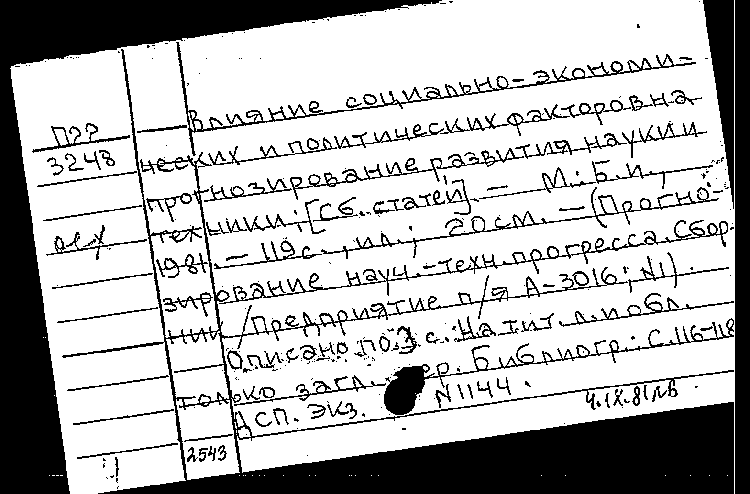 П??
3248
Влияние социально-экономи-
ческих и политических факторов на
прогнозирование развития науки и
техники; [Сб. статей]. - М.: Б.и.,
1981. - 119с., ил.; 20см. - (Прогно-
зирование науч.-техн. прогресса. Сбор-
ник / Предприятие п/я А-3016; N1).
Описано по 3 с. На тит. л. и обл.
только загл. сер. Библиогр.: С.116-118
ДСП. Экз. N1144.
4.IX.81
2543